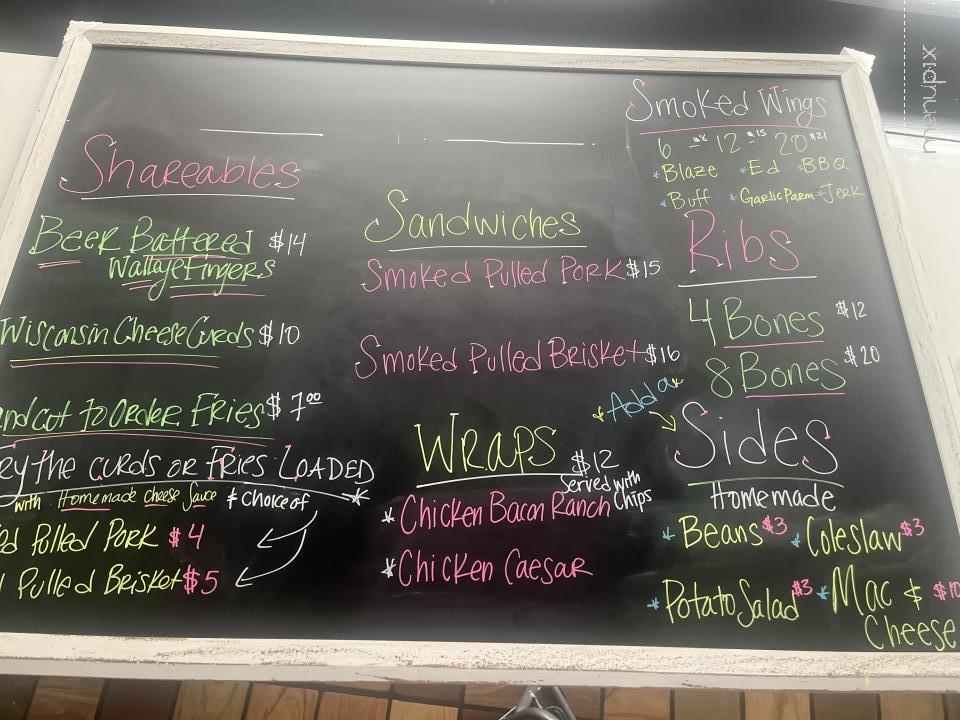 Shareables
Beer Battered $14
Walleye Fingers
Wisconsin Cheese Curds $10
nd cut to order Fries $7.00
ry the curds or Fries Loaded
with Homemade cheese Sauce & choice of
ed Pulled Pork $4
Pulled Brisket $5
Sandwiches
Smoked Pulled Pork $15
Smoked Pulled Brisket $16
Wraps $12
Served with
Chips
* Chicken Bacon Ranch
* Chicken Caesar
Smoked Wings
6 - $8 12 - $15 20 $21
* Blaze * Ed * BBQ
* Buff * Garlic Parm * Jerk
Ribs
4 Bones $12
8 Bones $20
* Add a *
Sides
Homemade
* Beans $3 * Coleslaw $3
* Potato Salad $3 * Mac & $10
Cheese
menupix